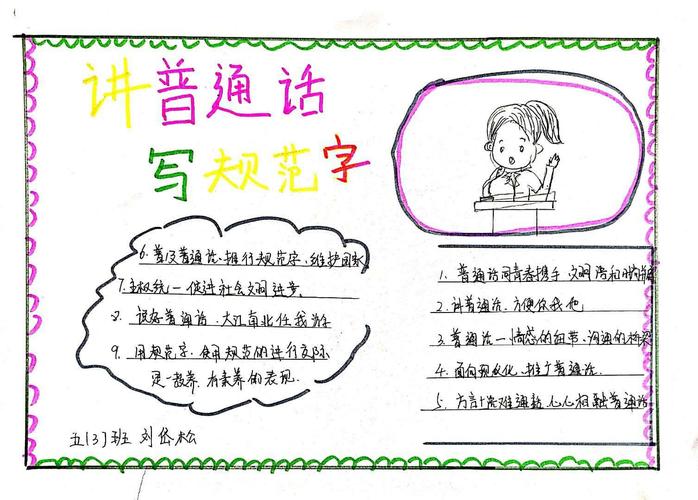 讲普通话
写规范字
6. 普及普通话、推行规范字、维护国家
7. 主权统一 促进社会文明进步。
8. 说好普通话、大江南北任我游
9. 用规范字、使用规范的进行交际
是一教养、有素养的表现.
1. 普通话同青春携手 文明语和时尚
2. 讲普通话、方便你我他
3. 普通话—情感的纽带、沟通的桥梁
4. 面向现代化、推广普通话
5. 方言 难通 心心相融普通话
五(3)班 刘岱松